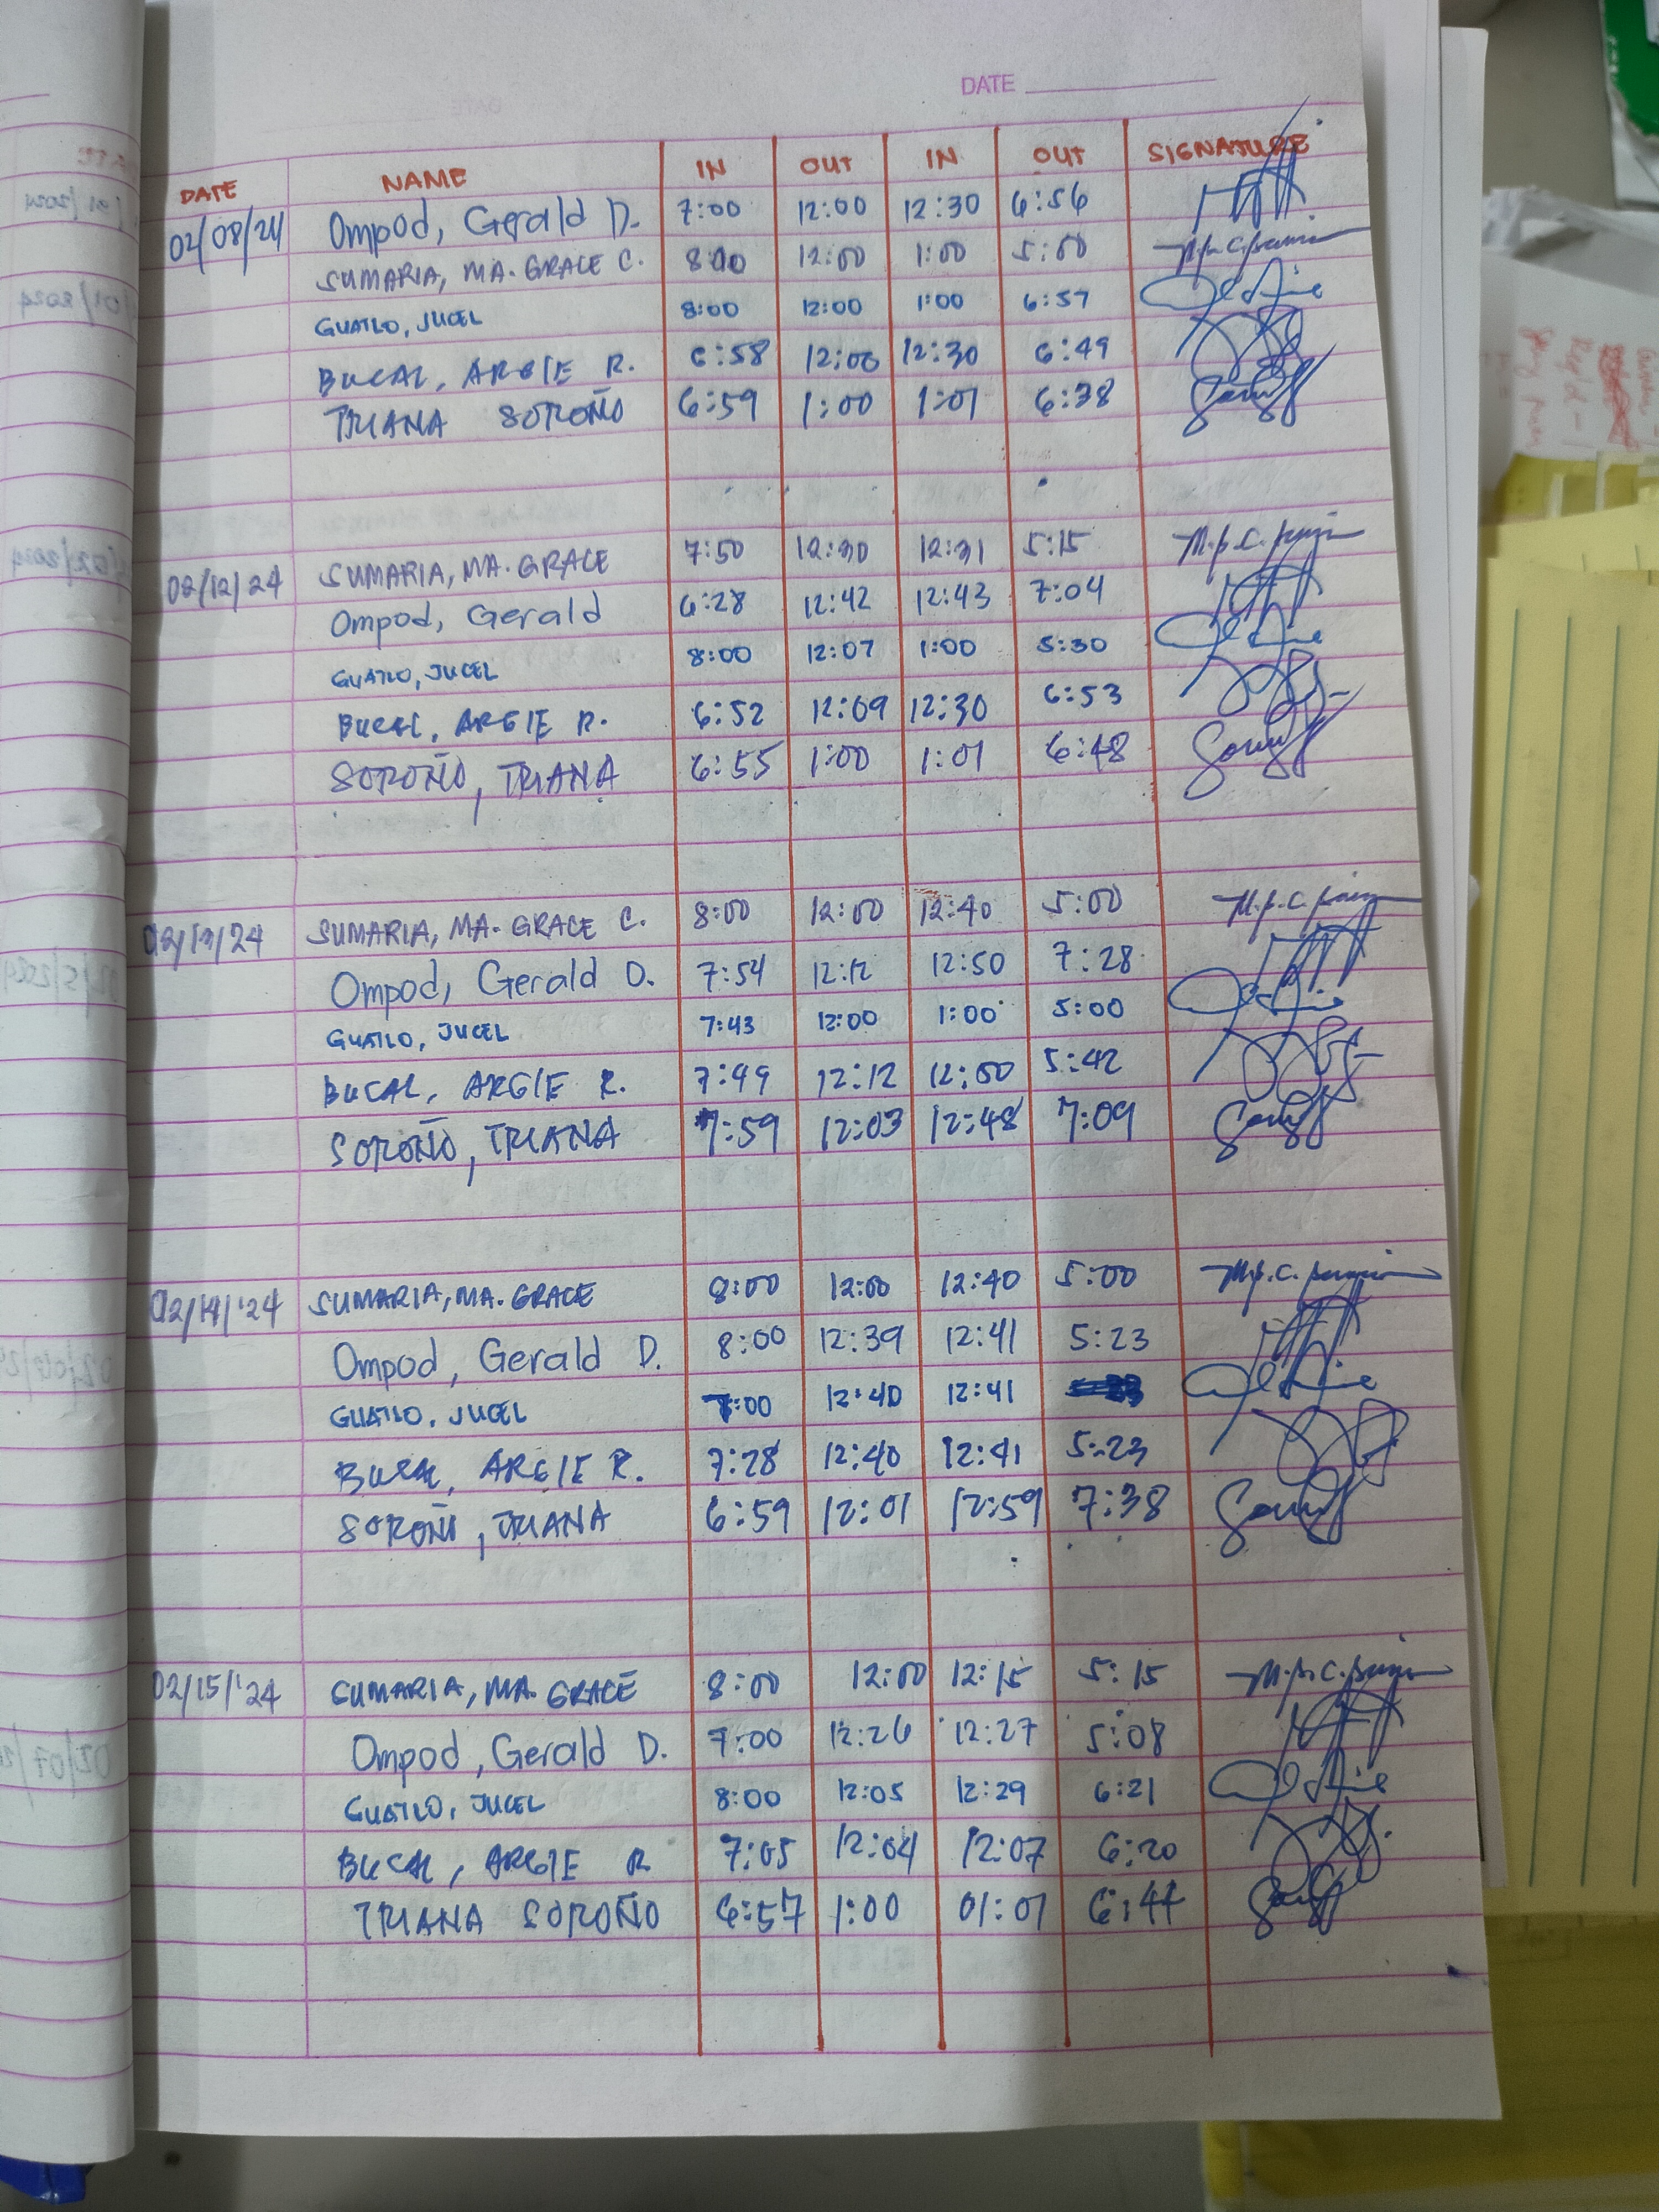 DATE
DATE NAME IN OUT IN OUT SIGNATURE
02/08/24 Ompod, Gerald D. 7:00 12:00 12:30 6:56
SUMARIA, MA. GRACE C. 8:00 12:00 1:00 5:00
GUATLO, JUCEL 8:00 12:00 1:00 6:57
BUCAL, ARGIE R. 6:58 12:00 12:30 6:49
TRIANA SOROÑO 6:59 1:00 1:01 6:38
02/12/24 SUMARIA, MA. GRACE 7:50 12:30 12:31 5:15
Ompod, Gerald 6:28 12:42 12:43 7:04
GUATLO, JUCEL 8:00 12:07 1:00 5:30
BUCAL, ARGIE R. 6:52 12:09 12:30 6:53
SOROÑO, TRIANA 6:55 1:00 1:01 6:48
02/13/24 SUMARIA, MA. GRACE C. 8:00 12:00 12:40 5:00
Ompod, Gerald D. 7:54 12:12 12:50 7:28
GUATLO, JUCEL 7:43 12:00 1:00 5:00
BUCAL, ARGIE R. 7:49 12:12 12:50 5:42
SOROÑO, TRIANA 7:59 12:03 12:48 7:09
02/14/'24 SUMARIA, MA. GRACE 8:00 12:00 12:40 5:00
Ompod, Gerald D. 8:00 12:39 12:41 5:23
GUATLO, JUCEL 7:00 12:40 12:41
BUCAL, ARGIE R. 7:28 12:40 12:41 5:23
SOROÑO, TRIANA 6:59 12:01 12:59 7:38
02/15/'24 SUMARIA, MA. GRACE 8:00 12:00 12:15 5:15
Ompod, Gerald D. 7:00 12:26 12:27 5:08
GUATLO, JUCEL 8:00 12:05 12:29 6:21
BUCAL, ARGIE R 7:05 12:04 12:07 6:20
TRIANA SOROÑO 6:57 1:00 01:01 6:44